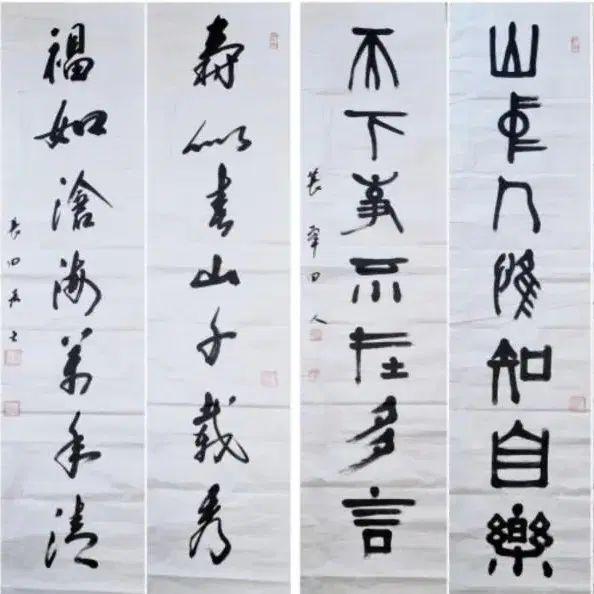 山中人惟知自樂
天下事不在多言
壽似春山千載秀
福如滄海萬年清